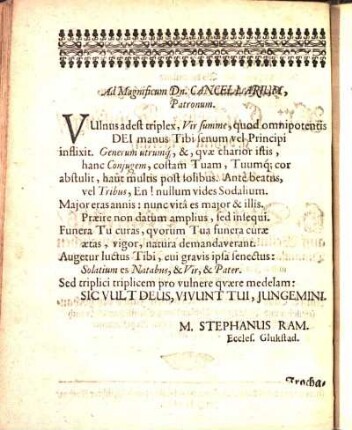 Ad Magnificum Dn. CANCELLARIUM,
Patronum.
VUlnus adest triplex, Vir summe, quod omnipotentis
DEI manus Tibi senum vel Principi
inflixit. Generum utrumq;, &, quæ charior istis,
hanc Conjugem, costam Tuam, Tuumq; cor
abstulit, haut multis post solibus. Antè beatus,
vel Tribus, En! nullum vides Sodalium.
Major eras annis: nunc vitâ es major & illis.
Præire non datum amplius, sed insequi.
Funera Tu curas, quorum Tua funera curæ
ætas, vigor, natura demandaverant.
Augetur luctus Tibi, cui gravis ipsa senectus:
Solatium es Natabus, & Vir, & Pater.
Sed triplici triplicem pro vulnere quære medelam:
SIC VULT DEUS, VIVUNT TUI, JUNGEMINI.
M. STEPHANUS RAM.
Eccles. Glukstad.
Trocha-